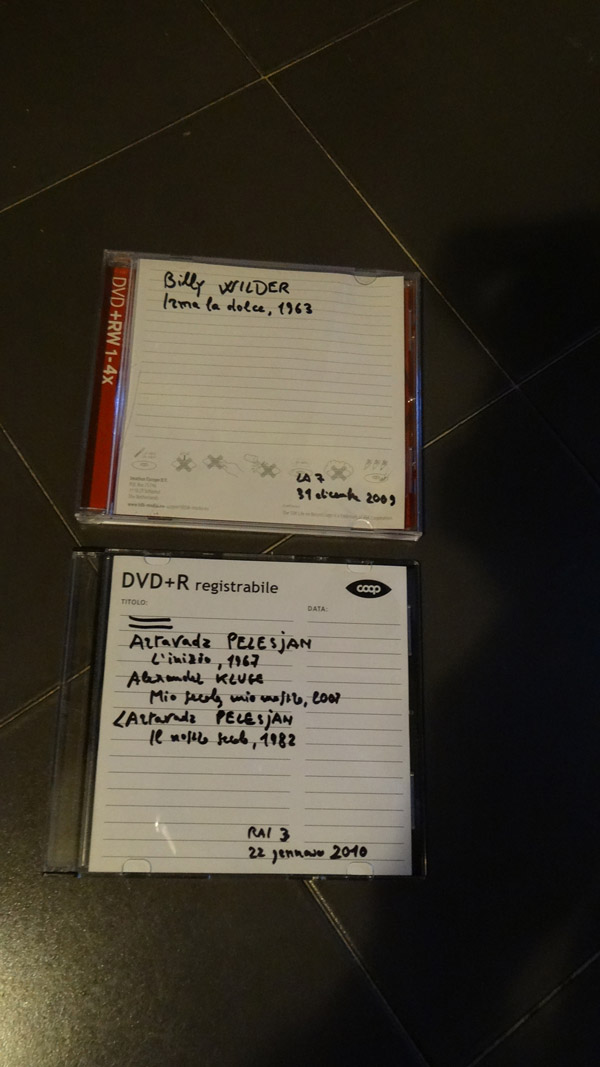 DVD+RW 1-4x
Billy WILDER
Irma la dolce, 1963
LA 7
31 dicembre 2009
DVD+R registrabile
coop
TITOLO:
DATA:
Artavadz PELESJAN
L'inizio, 1967
Alexander KLUGE
Mio secolo, mio mostro, 2007
<Artavadz PELESJAN
Il nostro secolo, 1982
RAI 3
22 gennaio 2010